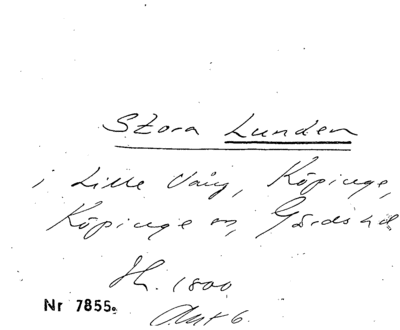 Stora Lunden
i Lille Vång, Köpinge,
Köpinge sn, Gärds hd
Sk. 1800
Nr 7855.
Akt 6.